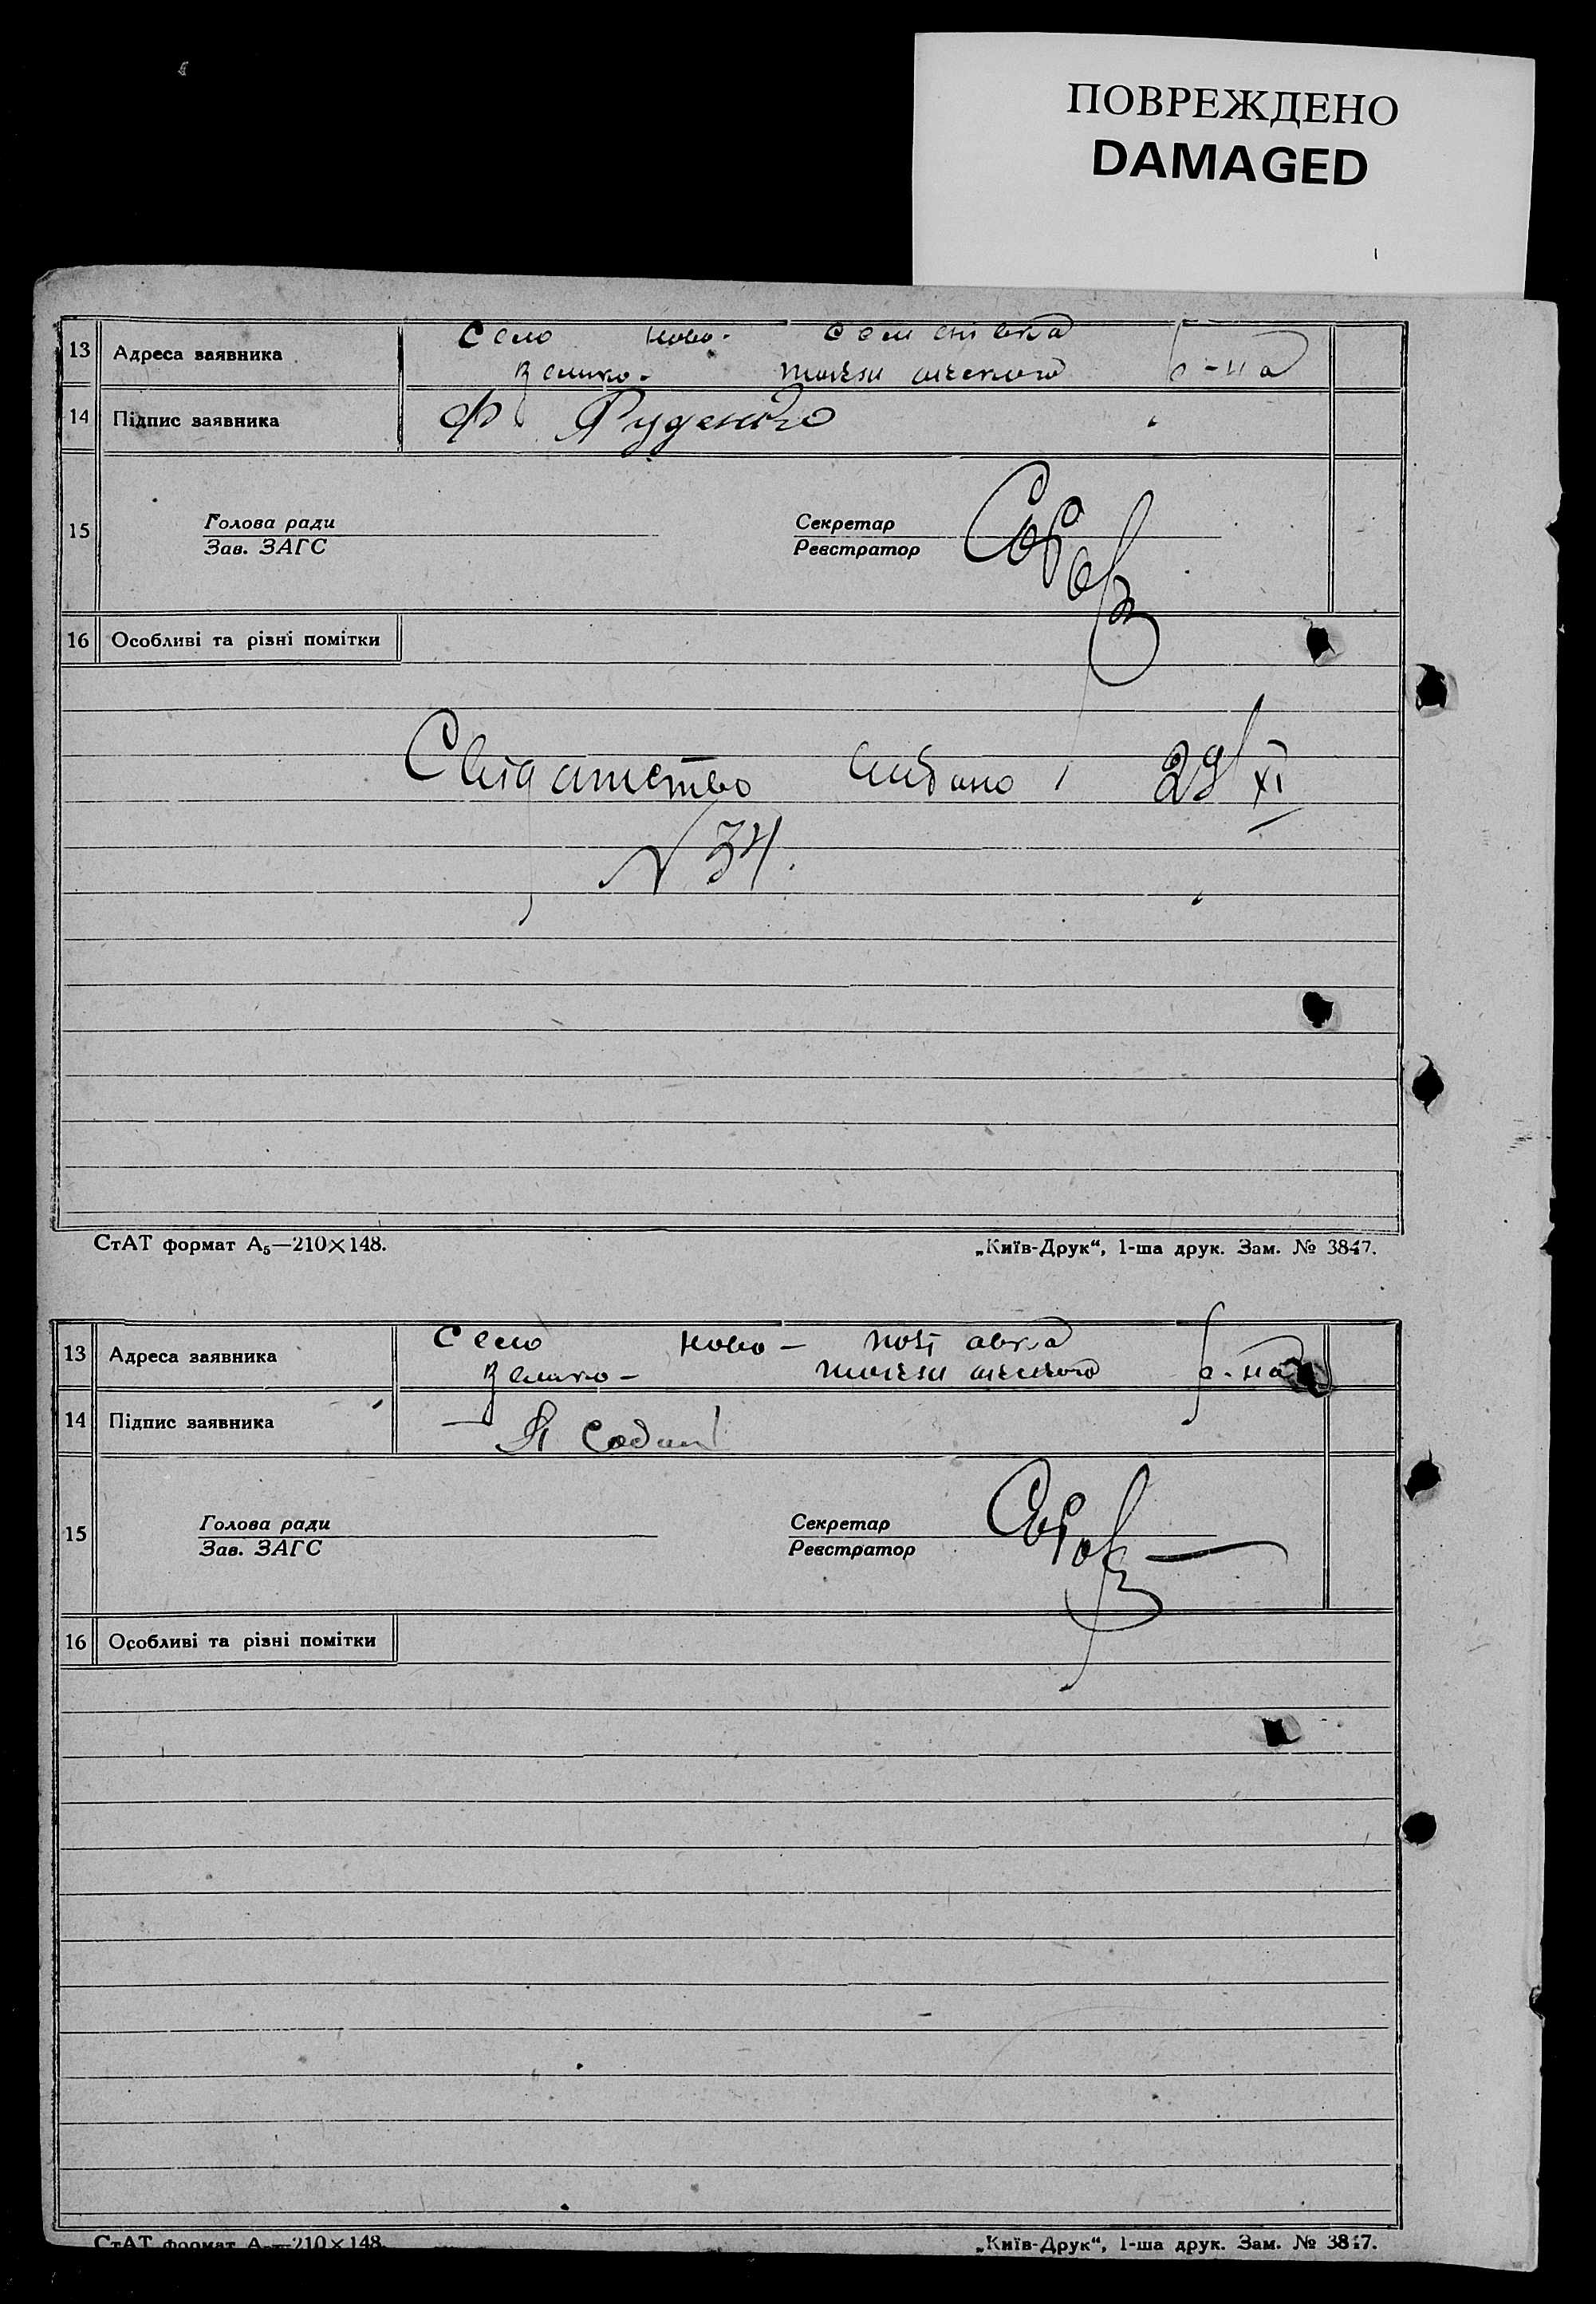 ПОВРЕЖДЕНО
DAMAGED
13 Адреса заявника Село Ново-
Велико- р-на
14 Підпис заявника Ф Руденко
15 Голова ради Секретар
Зав. ЗАГС Реєстратор
16 Особливі та різні помітки
Свідатство видано 29/XI
№ 34.
СтАТ формат А₅—210×148. „Київ-Друк“, 1-ша друк. Зам. № 3847.
13 Адреса заявника Село Ново-
Велико- р-на
14 Підпис заявника
15 Голова ради Секретар
Зав. ЗАГС Реєстратор
16 Особливі та різні помітки
СтАТ формат А₅—210×148. „Київ-Друк“, 1-ша друк. Зам. № 3847.